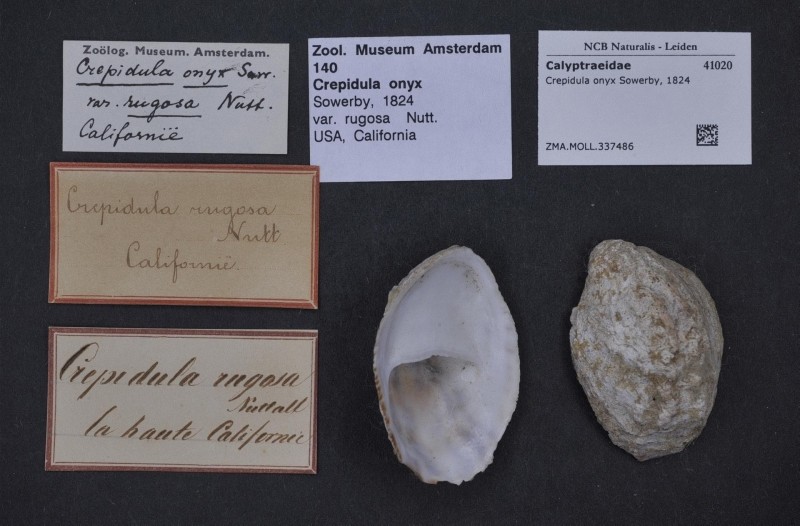 Zoölog. Museum. Amsterdam.
Crepidula onyx Sow.
var. rugosa Nutt.
Californië
Zool. Museum Amsterdam
140
Crepidula onyx
Sowerby, 1824
var. rugosa Nutt.
USA, California
NCB Naturalis - Leiden
Calyptraeidae 41020
Crepidula onyx Sowerby, 1824
ZMA.MOLL.337486
Crepidula rugosa
Nutt
Californië.
Crepidula rugosa
Nuttall
la haute Californie